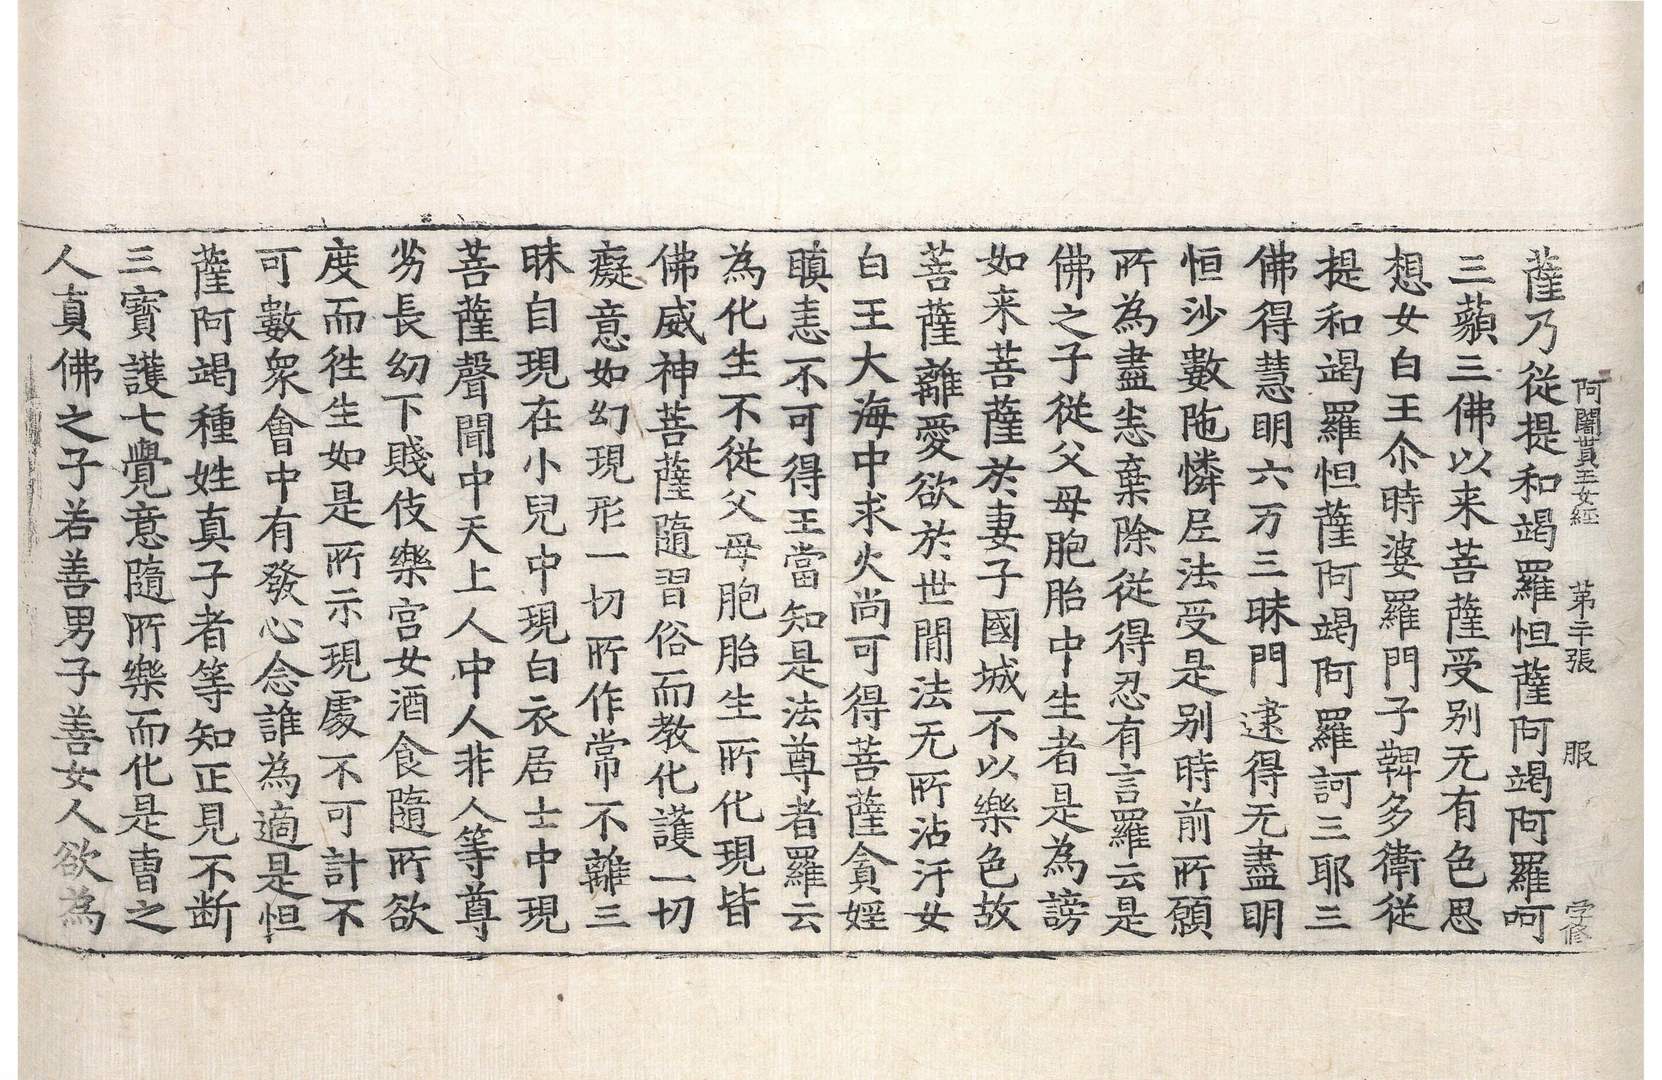 阿闍貰王女經 第二十張 服 孝修
薩乃從提和竭羅怛薩阿竭阿羅呵
三藐三佛以来菩薩受别无有色思
想女白王尒時婆羅門子鞞多衛從
提和竭羅怛薩阿竭阿羅訶三耶三
佛得慧明六万三昧門逮得无盡明
恒沙數陁憐尼法受是别時前所願
所為盡恚棄除從得忍有言羅云是
佛之子從父母胞胎中生者是為謗
如来菩薩於妻子國城不以樂色故
菩薩離愛欲於世間法无所沾汙女
白王大海中求火尚可得菩薩貪婬
瞋恚不可得王當知是法尊者羅云
為化生不從父母胞胎生所化現皆
佛威神菩薩隨習俗而教化護一切
癡意如幻現形一切所作常不離三
昧自現在小兒中現白衣居士中現
菩薩聲聞中天上人中人非人等尊
劣長幼下賤伎樂宫女酒食隨所欲
度而徃生如是所示現處不可計不
可數衆會中有發心念誰為適是怛
薩阿竭種姓真子者等知正見不断
三寳護七覺意隨所樂而化是曹之
人真佛之子若善男子善女人欲為